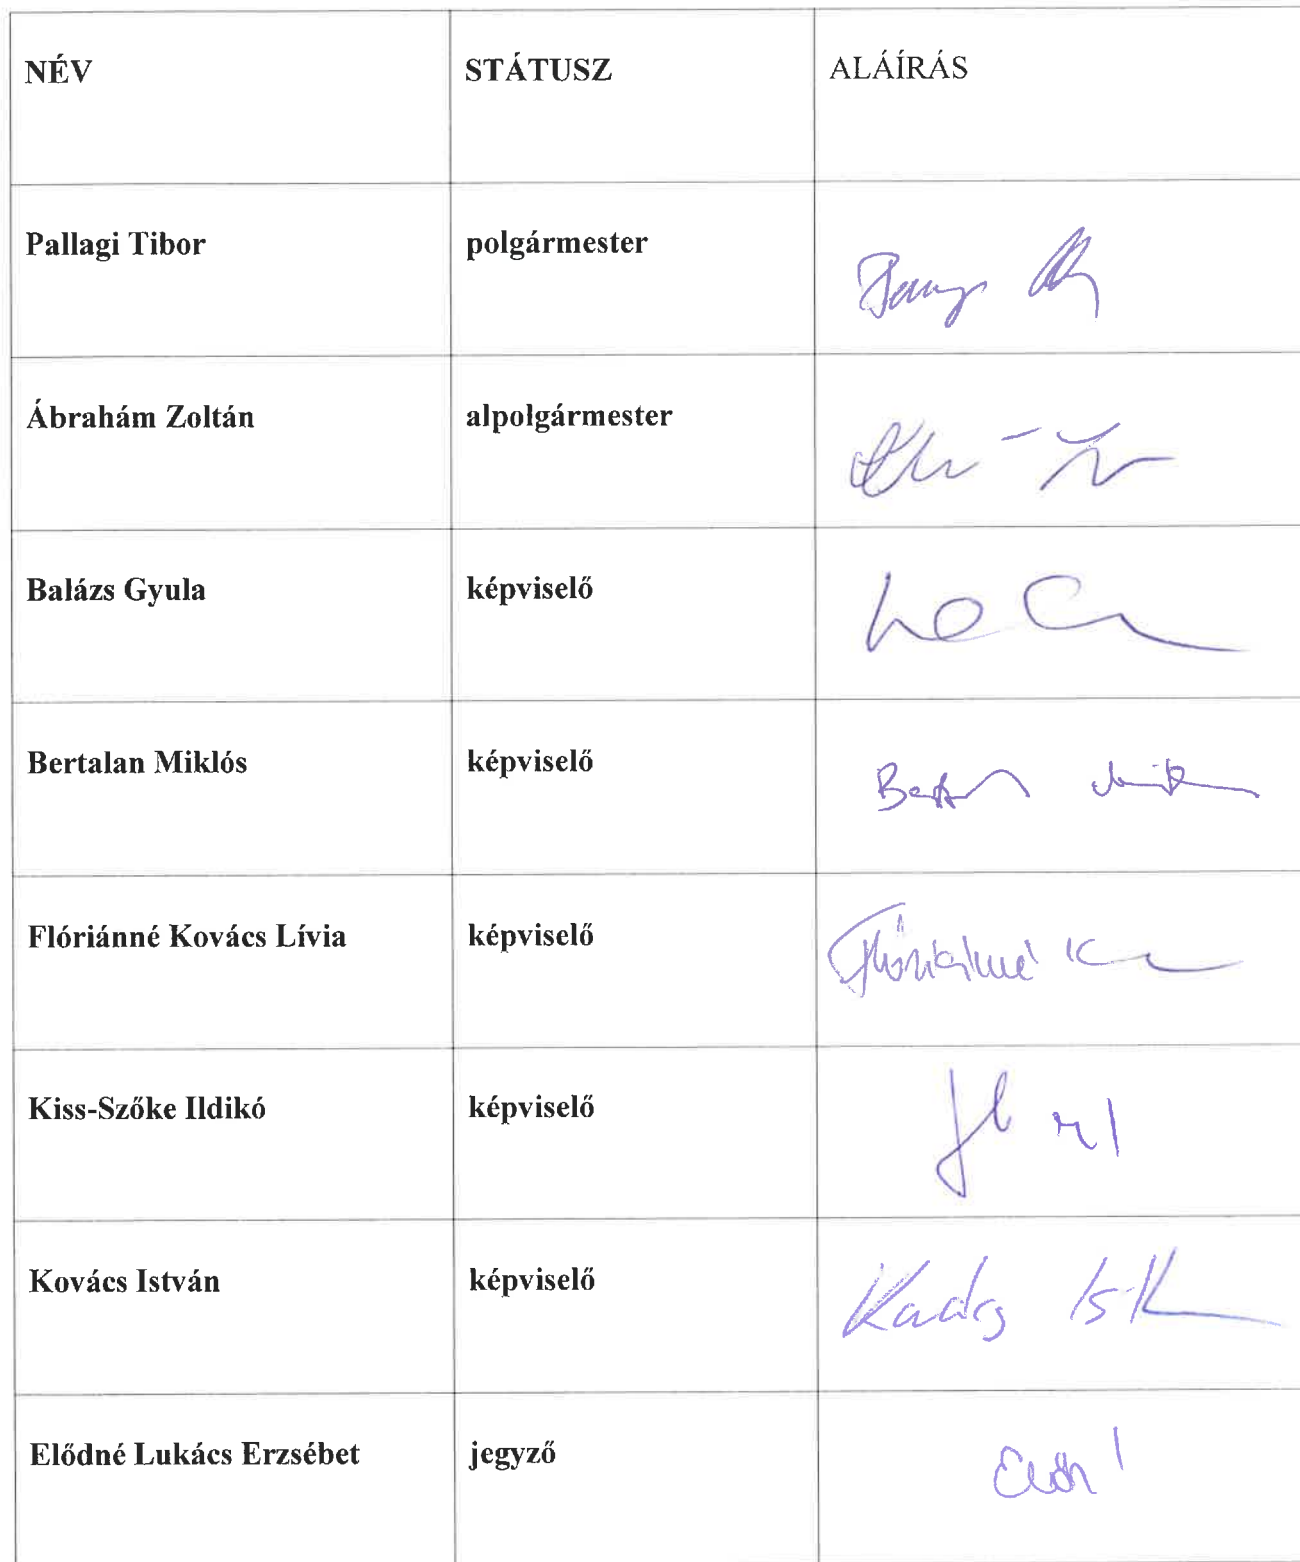 NÉV STÁTUSZ ALÁÍRÁS
Pallagi Tibor polgármester
Ábrahám Zoltán alpolgármester
Balázs Gyula képviselő
Bertalan Miklós képviselő
Flóriánné Kovács Lívia képviselő Flóriánné K
Kiss-Szőke Ildikó képviselő
Kovács István képviselő
Elődné Lukács Erzsébet jegyző